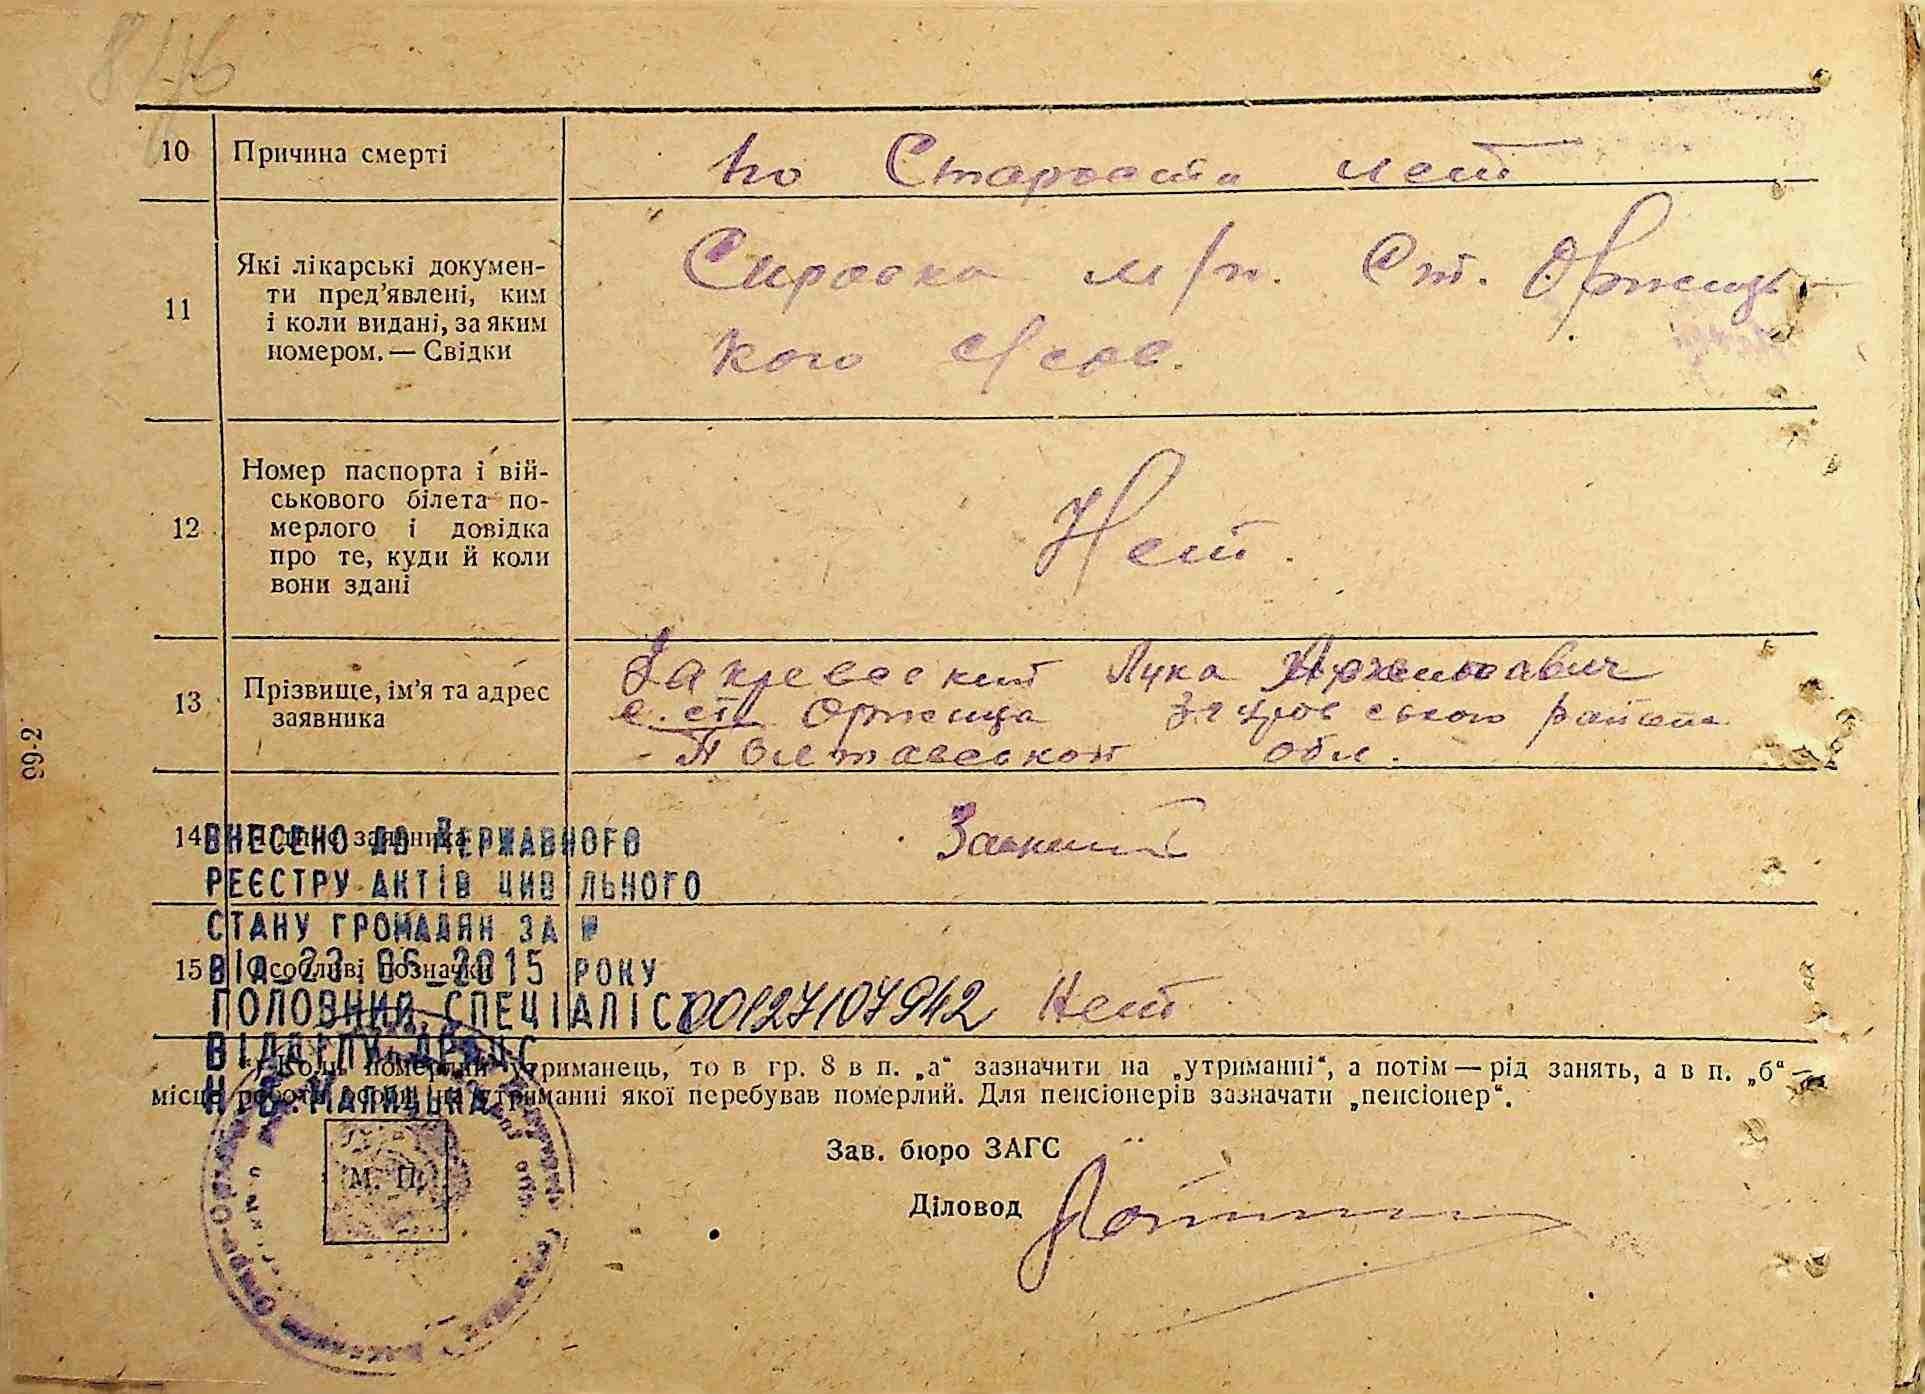 8/76
10 Причина смерті по Старости лет
11 Які лікарські докумен-
ти пред'явлені, ким
і коли видані, за яким
номером. — Свідки
Справка м/п. Ст. Оржиць-
кого с/сов.
12 Номер паспорта і вій-
ськового білета по-
мерлого і довідка
про те, куди й коли
вони здані
Нет.
13 Прізвище, ім'я та адрес
заявника
Закревский Лука
с. ст. Оржица Згуровського района
Полтавской обл.
14 заявника
ВНЕСЕНО ДО ДЕРЖАВНОГО
РЕЄСТРУ АКТІВ ЦИВІЛЬНОГО
СТАНУ ГРОМАДЯН ЗА №
15 Особливі позначки Нет
ВІД 23 06 2015 РОКУ
ГОЛОВНИЙ СПЕЦІАЛІСТ 00127107942
ВІДДІЛУ ДРАЦС
Н. В. МАЛИЦЬКА
*) Коли померлий утриманець, то в гр. 8 в п. „а“ зазначити на „утриманні“, а потім — рід занять, а в п. „б“ —
місце роботи особи, на утриманні якої перебував померлий. Для пенсіонерів зазначати „пенсіонер“.
Зав. бюро ЗАГС
М. П.
Діловод
99-2